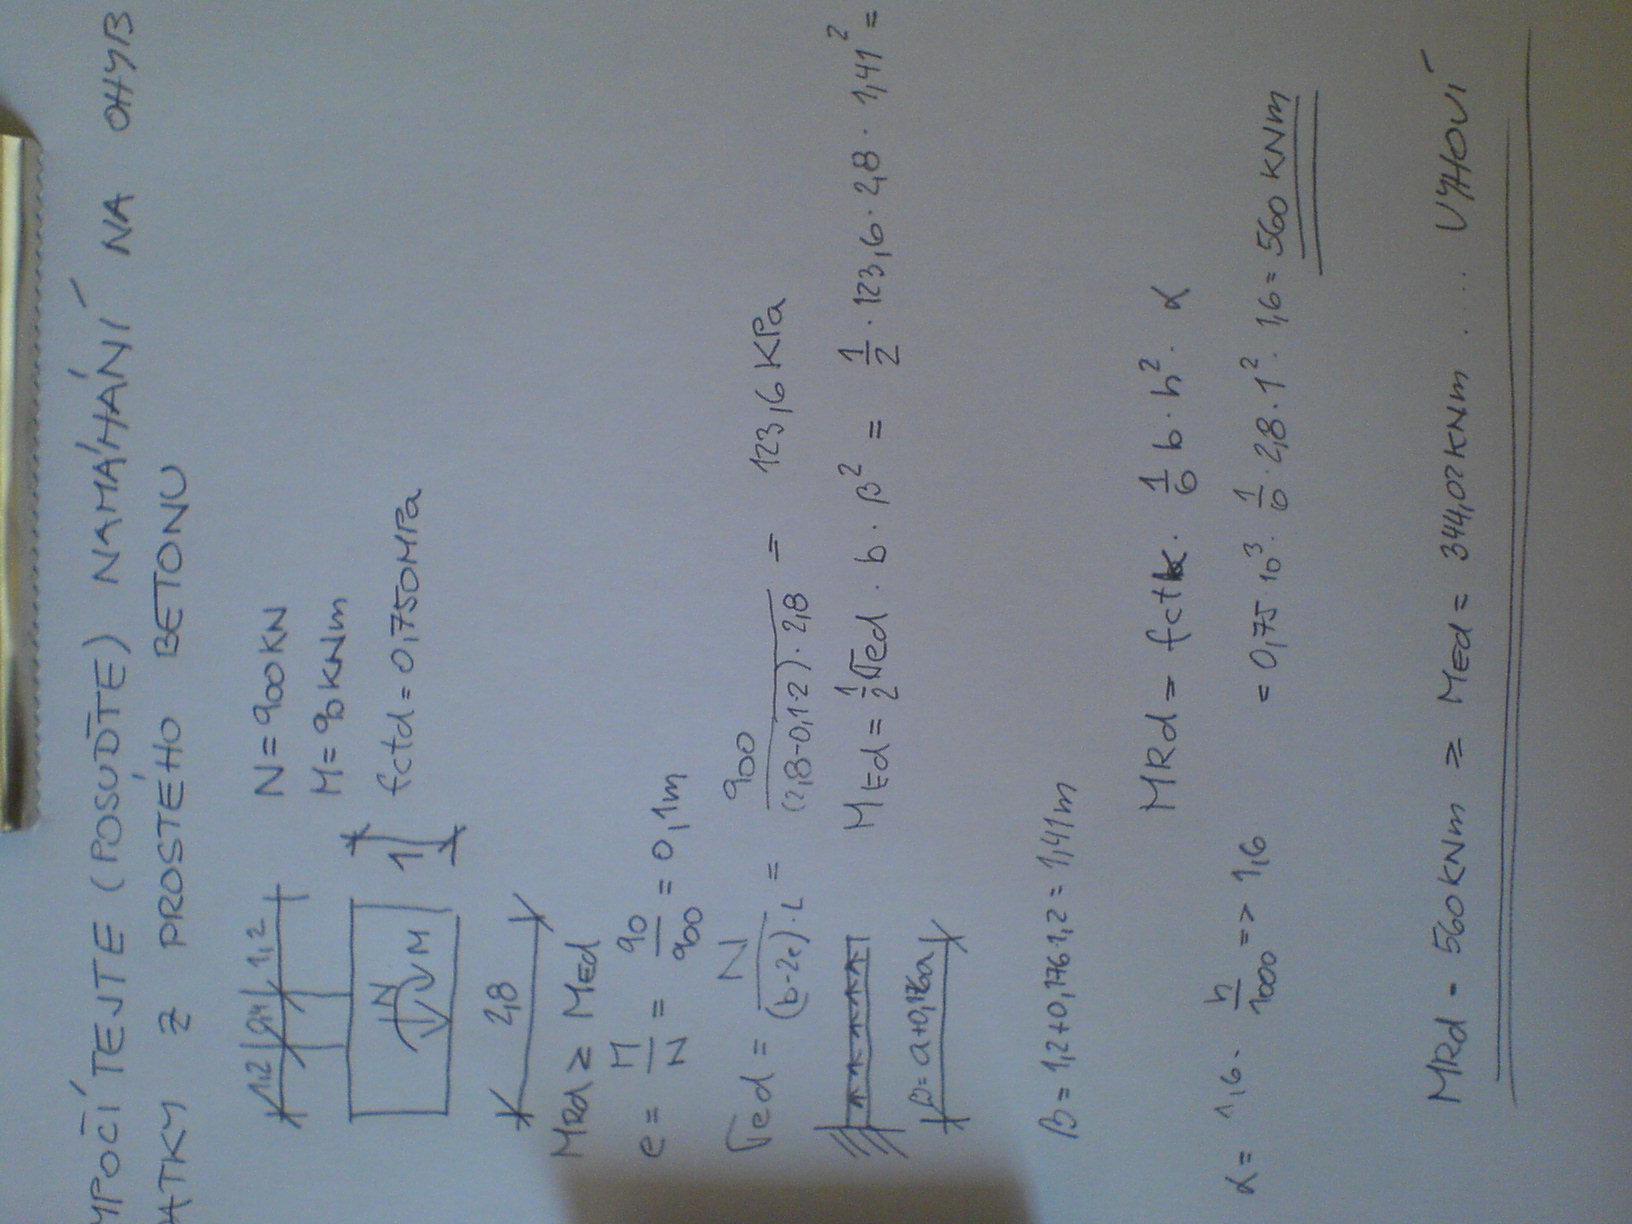 MPOČÍTEJTE (POSUĎTE) NAMÁHÁNÍ NA OHYB
ATKY Z PROSTÉHO BETONU
1,2 0,4 1,2
N = 900 KN
M = 90 KNm
fctd = 0,750 MPa
N M 1
2,8
MRd ≥ MEd
e = M/N = 90/900 = 0,1m
σed = N/((b-2e)·L) = 900/((2,8-0,1·2)·2,8) = 123,6 KPa
MEd = 1/2 σed · b · β² = 1/2 · 123,6 · 2,8 · 1,41² =
β = a+0,176a
β = 1,2+0,176·1,2 = 1,41m
MRd = fctk · 1/6 b · h² · α
α = 1,6 · h/1000 => 1,6
= 0,75 · 10³ · 1/6 · 2,8 · 1² · 1,6 = 560 KNm
MRd = 560 KNm ≥ MEd = 344,02 KNm ... VYHOVÍ